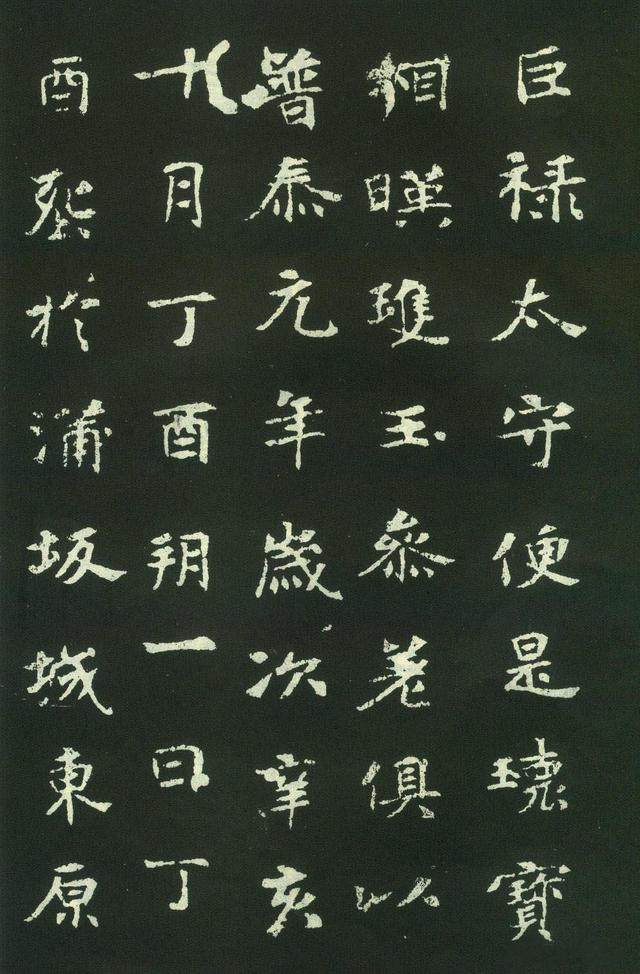 巨祿太守便是瓌寶
相暎瓊玉叅差俱以
普泰元年歲次辛亥
十月丁酉朔一日丁
酉葬於浦坂城東原